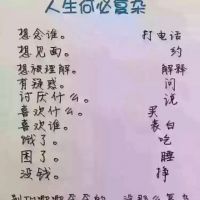 人生何必复杂
想念谁。 打电话
想见面。 约
想被理解。 解释
有疑惑。 问
讨厌什么。 说
喜欢什么。 买
喜欢谁。 表白
饿了。 吃
困了。 睡
没钱。 挣
没那么复杂